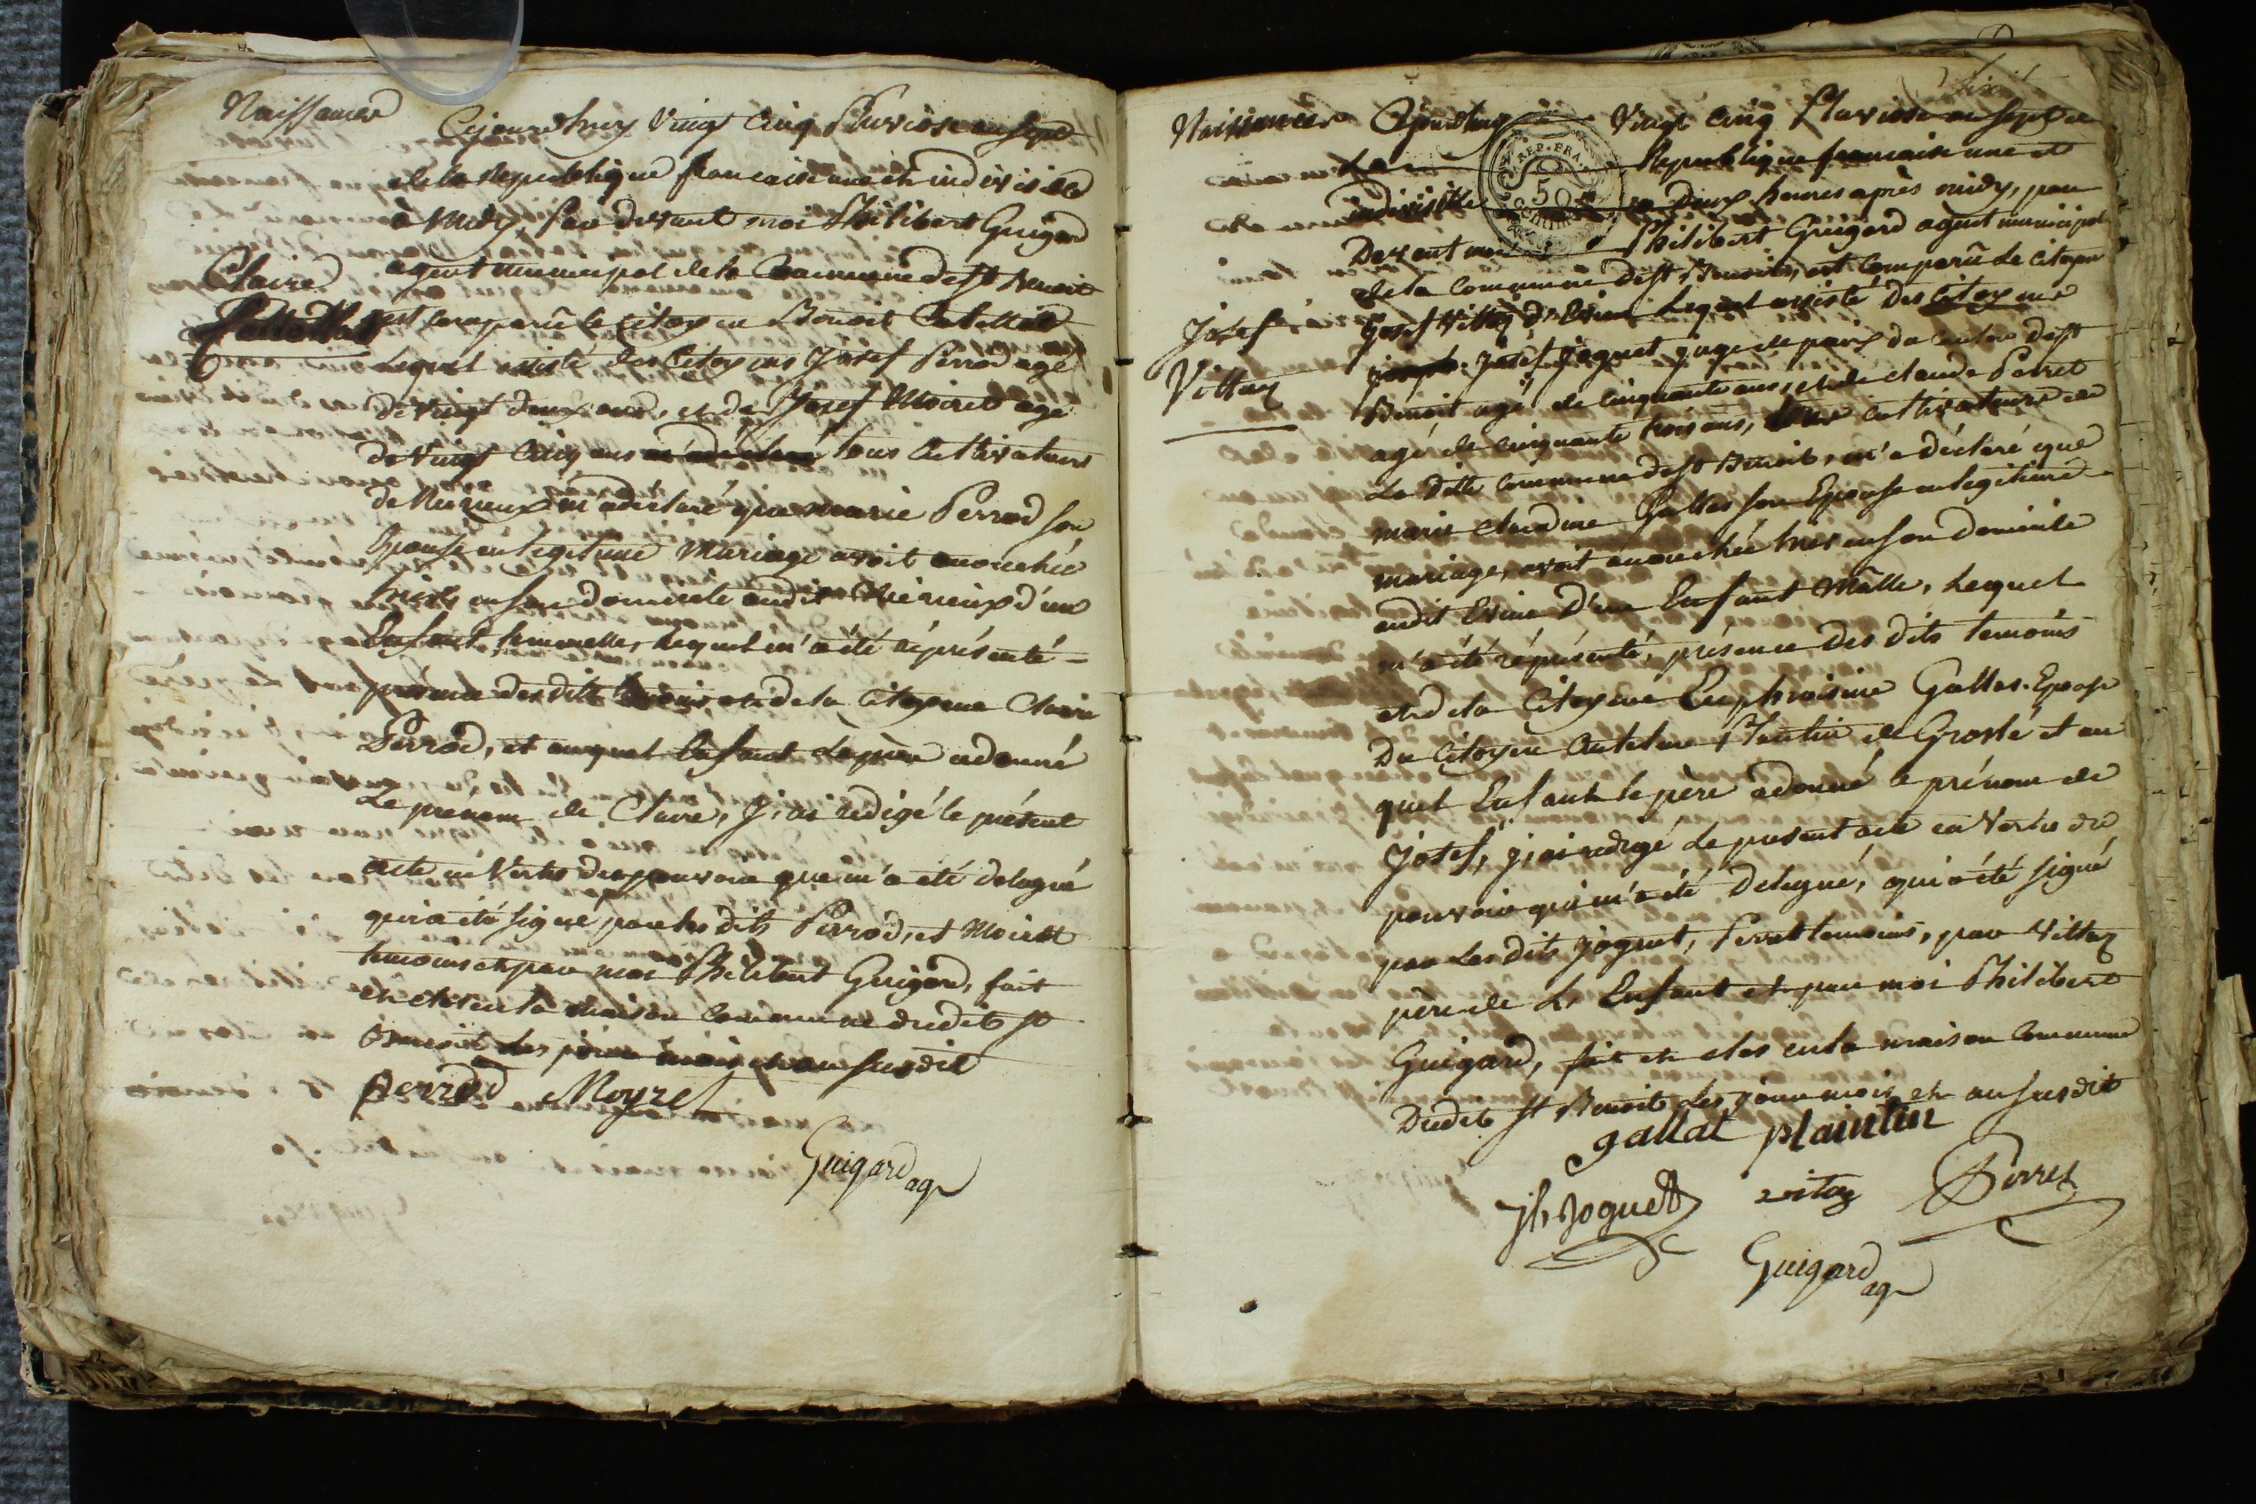 Naissances
Cejourd'huy vingt cinq Pluviose an sept
de la Republique francaise une et indivisible
à midy, par devant moi Philibert Guigard
agent municipal de la Commune de St Benoit
Claire
est comparû le citoyen Benoit
lequel assisté des Citoyens Josef Perrod agé
de vingt deux ans, et de Josef Moiret agé
de vingt cinq ans tous cultivateurs
de m'a déclaré que marie Perrod son
Epouse en legitime mariage avoit accouchée
hier en son domicile audit d'un
Enfant femmelle, lequel m'a été réprésenté
présence des dits temoins et de la Citoyenne Claire
Perrod, et auquel Enfant le père a donné
Le prénom de Claire, j'ai redigé le présent
acte en Vertu des pouvoirs que m'a été delegué
qui a été signé par les dits Perrod, et Moiret
temoins et par moi Philibert Guigard, fait
et clos en la maison commune dudit St
Benoit les jour mois et an susdit
perrod Moyret
Guigard ag
Naissances Cejourdhuy Vingt cinq Pluviose an sept de
REP. FRA.
50
CENTIMES
La Republique francaise une et
indivisible à Deux heures après midy, par
Devant moi Philibert Guigard agent municipal
de la Commune de St Benoit, est comparû le citoyen
Josef
Josef Vittoz d'Evieu Lequel assisté des Citoyens
Vittoz
Josef Joguet juge de paix du Canton de St
Benoit agé de Cinquante ans, et de claude Perret
agé de cinquante trois ans, tous cultivateurs de
La dite commune de St Benoit, m'a déclaré que
marie claudine Gallas son Epouse en legitime
mariage, avoit accouchée hier en son domicile
audit Evieu D'un Enfant Mâlle, Lequel
m'a été réprésenté, présence des dits temoins
et de la Citoyenne Euphroisine Gallas Epouse
Du Citoyen Antelme Plantin de Groslé et au
quel Enfant le père a donné le prénom de
Josef, j'ai redigé le present acte en Vertu du
pouvoir qui m'a été Delegué, qui a été signé
par Les dits joguet, Perret temoins, par Vittoz
père de L'Enfant et par moi Philibert
Guigard, fait et clos en la maison Commune
Dudit St Benoit Les jour mois et an susdit
gallat plaintin
Jh Joguet vitoz Perret
Guigard ag